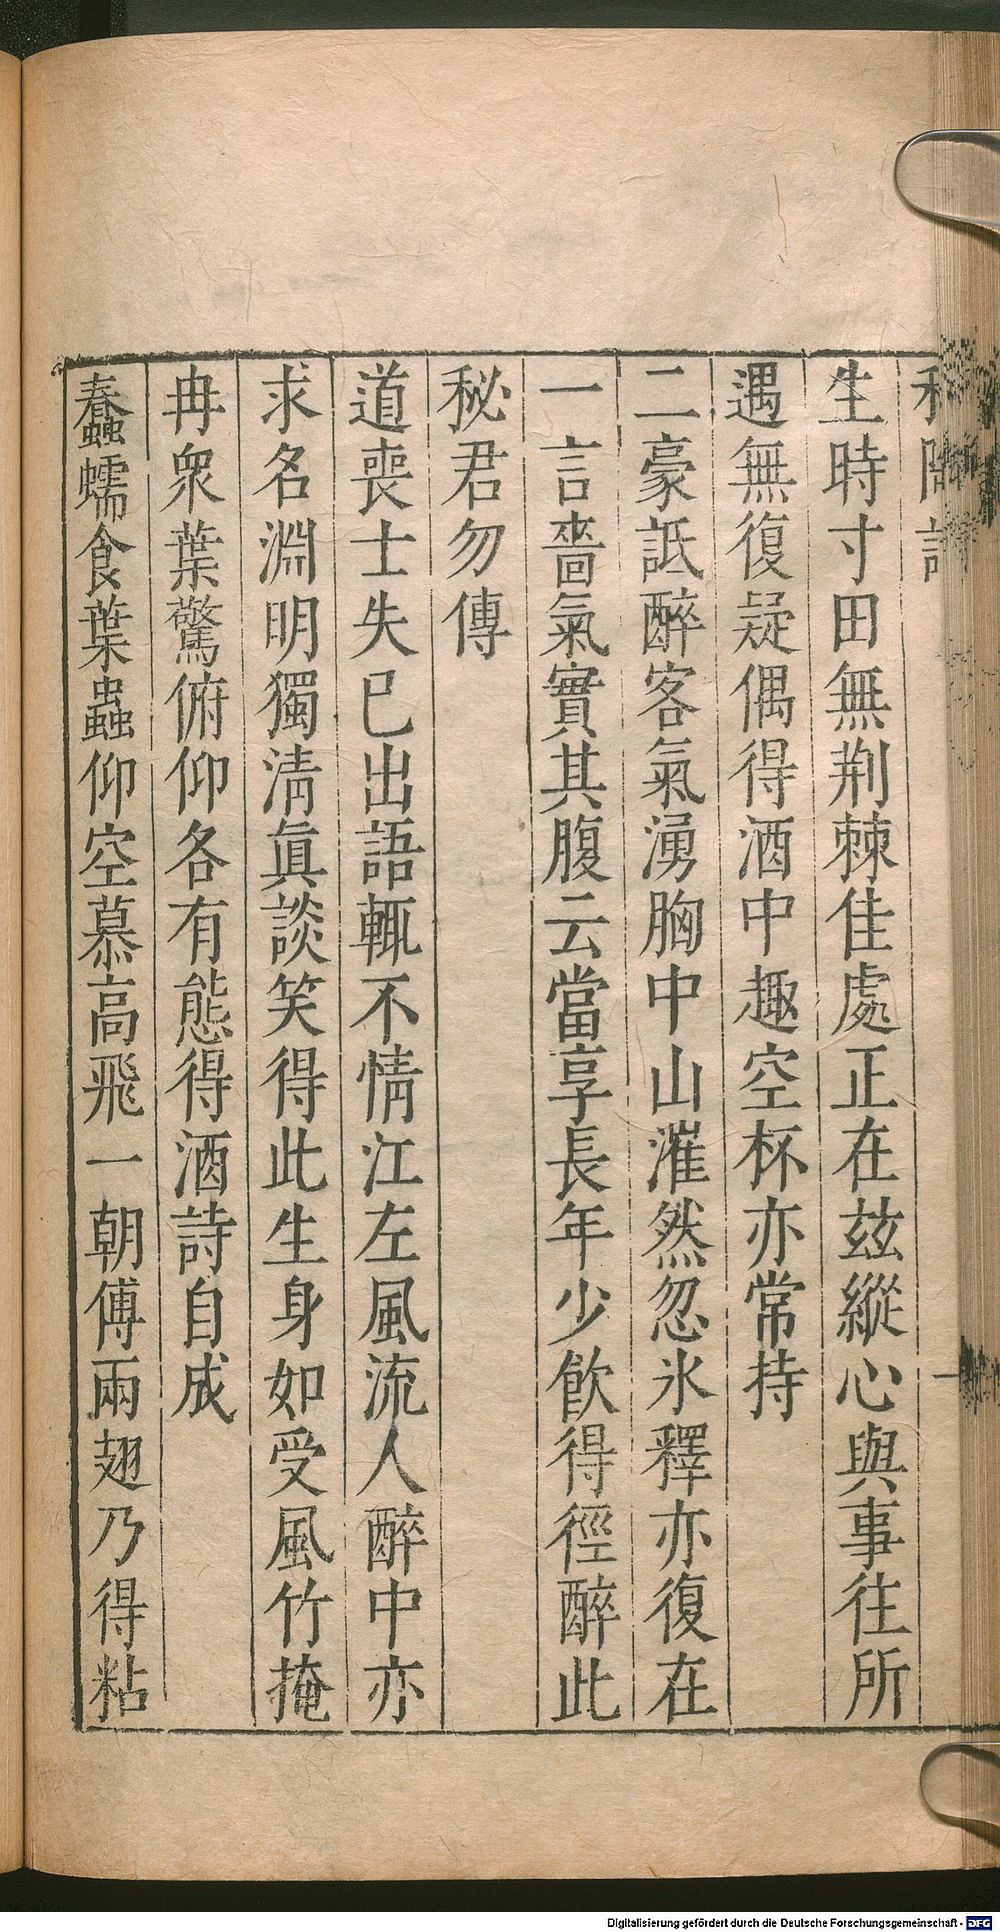 和陶詩
生時寸田無荆棘佳處正在玆縱心與事往所
遇無復疑偶得酒中趣空杯亦常持
二豪詆醉客氣湧胸中山漼然忽氷釋亦復在
一言嗇氣實其腹云當享長年少飲得徑醉此
秘君勿傳
道喪士失已出語輒不情江左風流人醉中亦
求名淵明獨淸眞談笑得此生身如受風竹掩
冉衆葉驚俯仰各有態得酒詩自成
蠢蠕食葉蟲仰空慕高飛一朝傅兩翅乃得粘
Digitalisierung gefördert durch die Deutsche Forschungsgemeinschaft - DFG